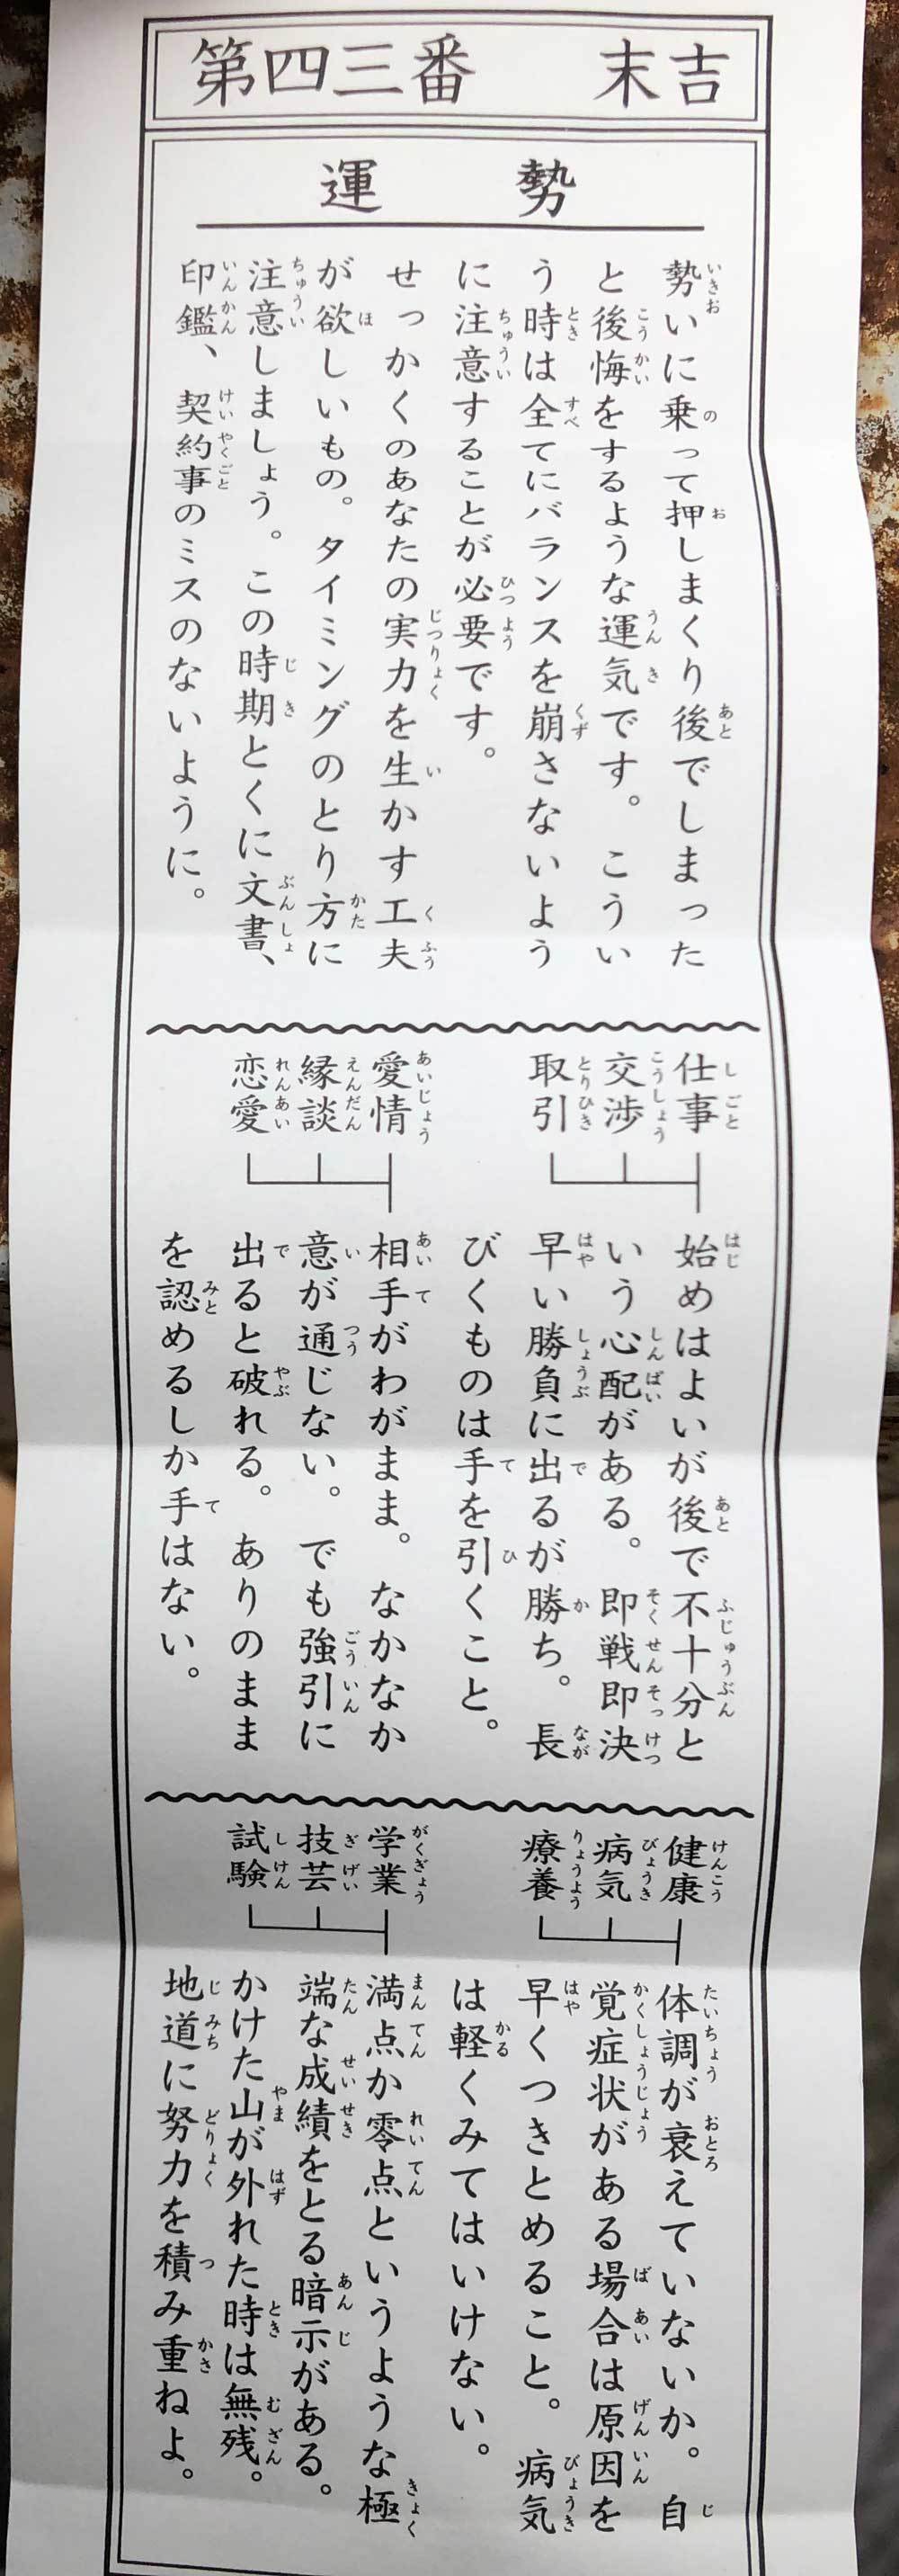 第四三番 末吉
運勢
勢いに乗って押しまくり後でしまった
と後悔をするような運気です。こうい
う時は全てにバランスを崩さないよう
に注意することが必要です。
せっかくのあなたの実力を生かす工夫
が欲しいもの。タイミングのとり方に
注意しましょう。この時期とくに文書、
印鑑、契約事のミスのないように。
仕事
交渉
取引
始めはよいが後で不十分と
いう心配がある。即戦即決
早い勝負に出るが勝ち。長
びくものは手を引くこと。
愛情
縁談
恋愛
相手がわがまま。なかなか
意が通じない。でも強引に
出ると破れる。ありのまま
を認めるしか手はない。
健康
病気
療養
体調が衰えていないか。自
覚症状がある場合は原因を
早くつきとめること。病気
は軽くみてはいけない。
学業
技芸
試験
満点か零点というような極
端な成績をとる暗示がある。
かけた山が外れた時は無残。
地道に努力を積み重ねよ。